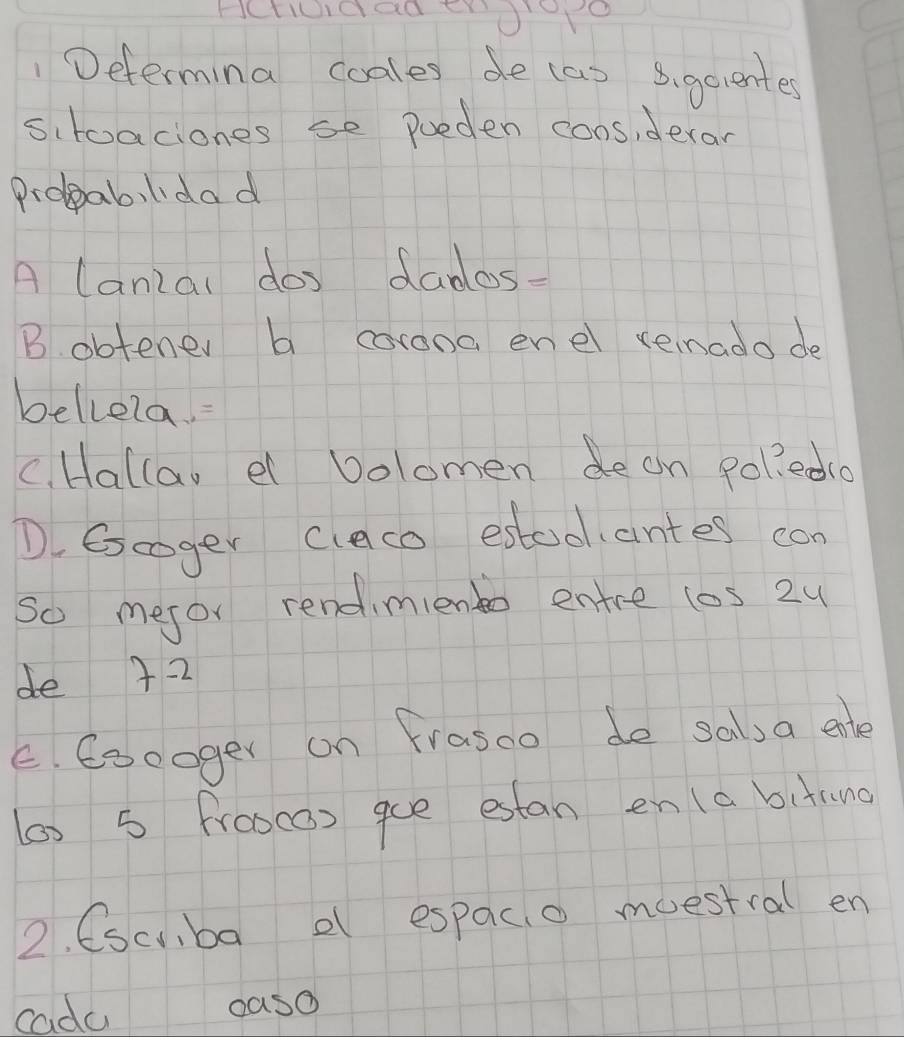 Actividad en gropo
1 Determina coales de las sigoientes
sitoaciones se poeden considerar
probabilidad
A lanzar dos dados =
B. obtener la corona en el reinado de
belleza. =
C. Hallar el volomen de on poliedro
D. Escoger cinco estodiantes con
so mejor rendimiento entre los 24
de 7-2
E. Escoger on frasco de salsa entre
los 5 frascos qoe estan en la bitrina
2. Escriba el espacio moestral en
cada caso